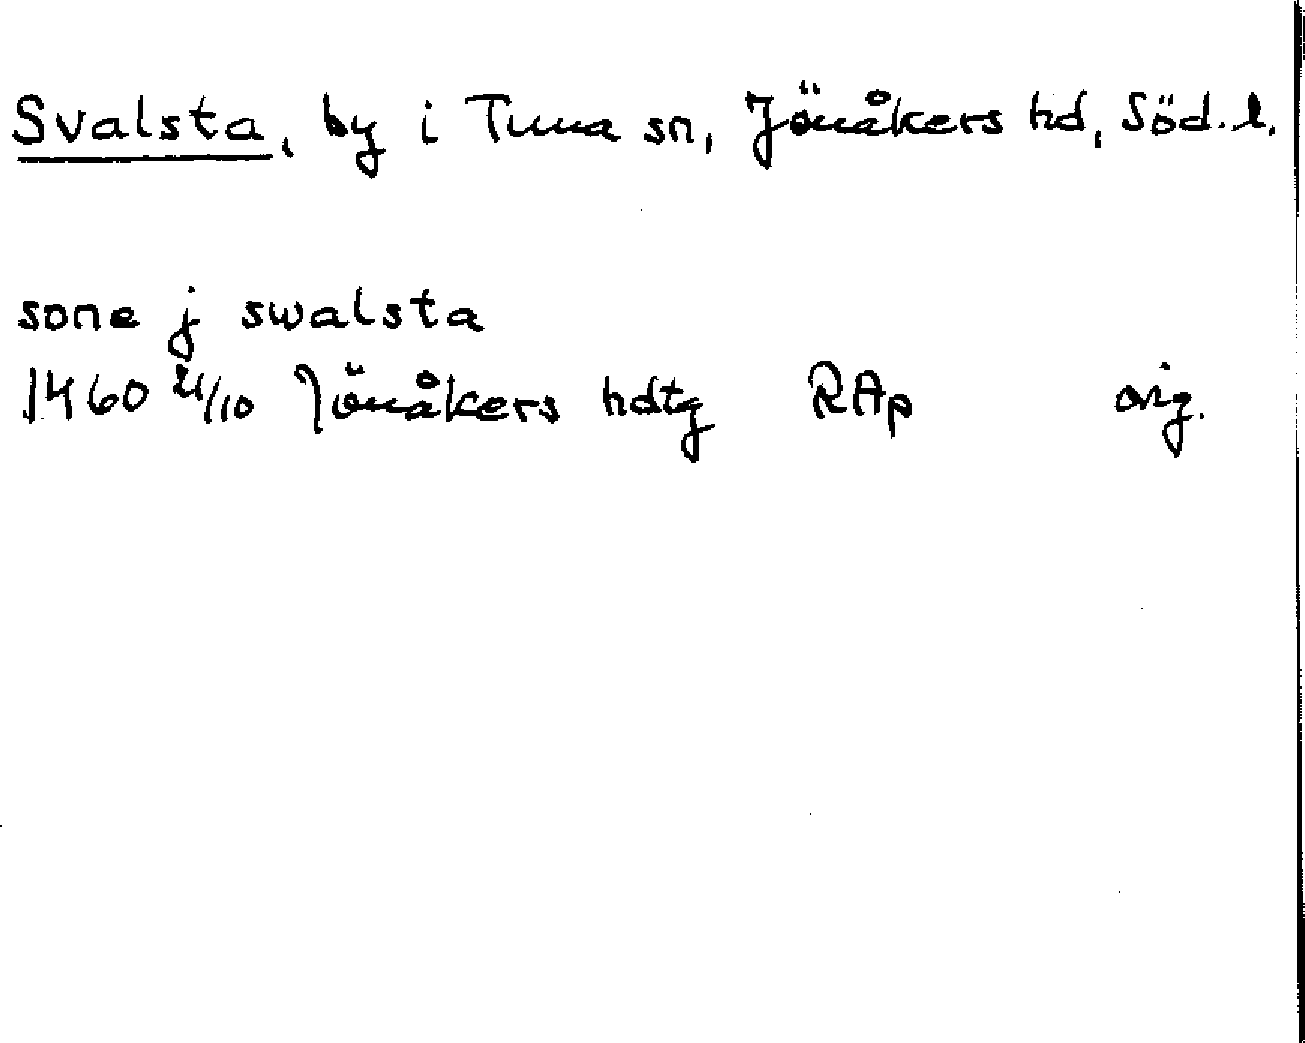 Svalsta, by i Tuna sn, Jönåkers hd, Söd. l.
sone j swalsta
1460 21/10 Jönåkers hdtg RAp orig.